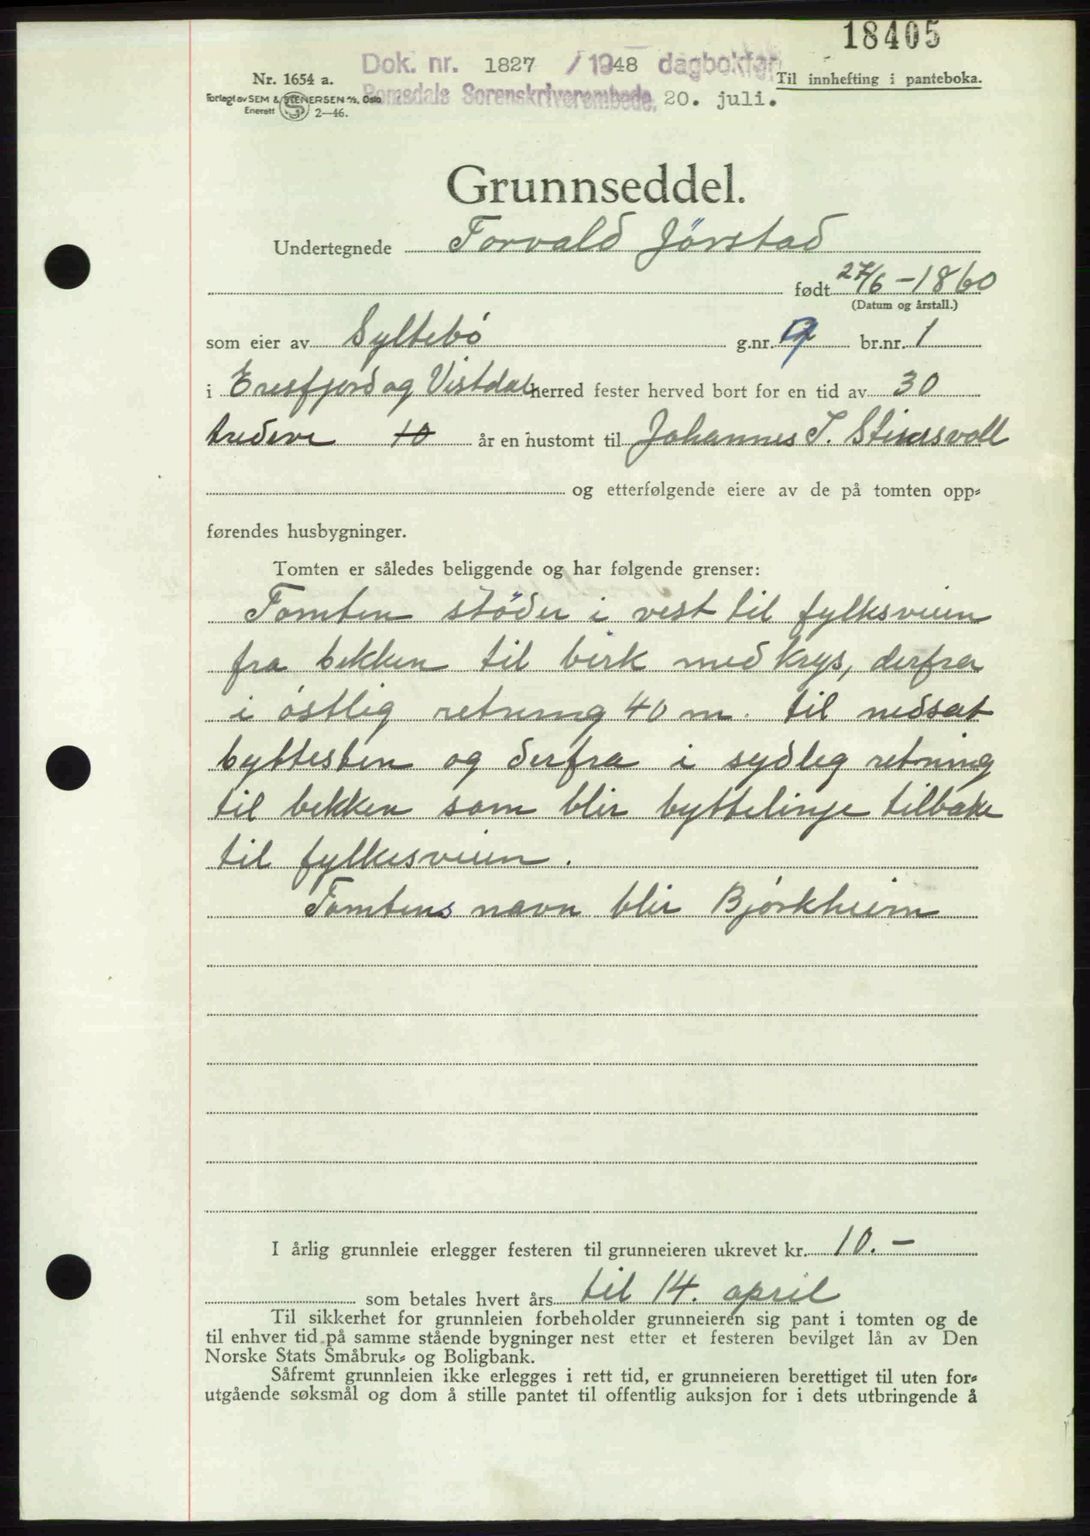 18405
Dok. nr. 1827 / 1948 dagbokført
Nr. 1654 a.
Til innhefting i panteboka.
Forlagt av SEM & STENERSEN A/S, Oslo
Romsdals Sorenskriverembede, 20. juli.
Enerett 2—46.
Grunnseddel.
Undertegnede Torvald Jörstad
født 27/6 - 1860
(Datum og årstall.)
som eier av Syltebö g.nr. br.nr. 1
i Eresfjord og Vistdal herred fester herved bort for en tid av 30
tredeve 10 år en hustomt til Johannes T.
og etterfølgende eiere av de på tomten opp-
førendes husbygninger.
Tomten er således beliggende og har følgende grenser:
Tomten stöder i vest til fylksveien
fra bekken til birk med krys, derfra
i östlig retning 40 m. til nedsat
byttesten og derfra i sydleg retning
til bekken som blir byttelinje tilbake
til fylkesveien.
Tomtens navn blir Bjørkheim
I årlig grunnleie erlegger festeren til grunneieren ukrevet kr. 10.-
som betales hvert års til 14. april
Til sikkerhet for grunnleien forbeholder grunneieren sig pant i tomten og de
til enhver tid på samme stående bygninger nest etter et festeren bevilget lån av Den
Norske Stats Småbruk- og Boligbank.
Såfremt grunnleien ikke erlegges i rett tid, er grunneieren berettiget til uten for-
utgående søksmål og dom å stille pantet til offentlig auksjon for i dets utbringende å